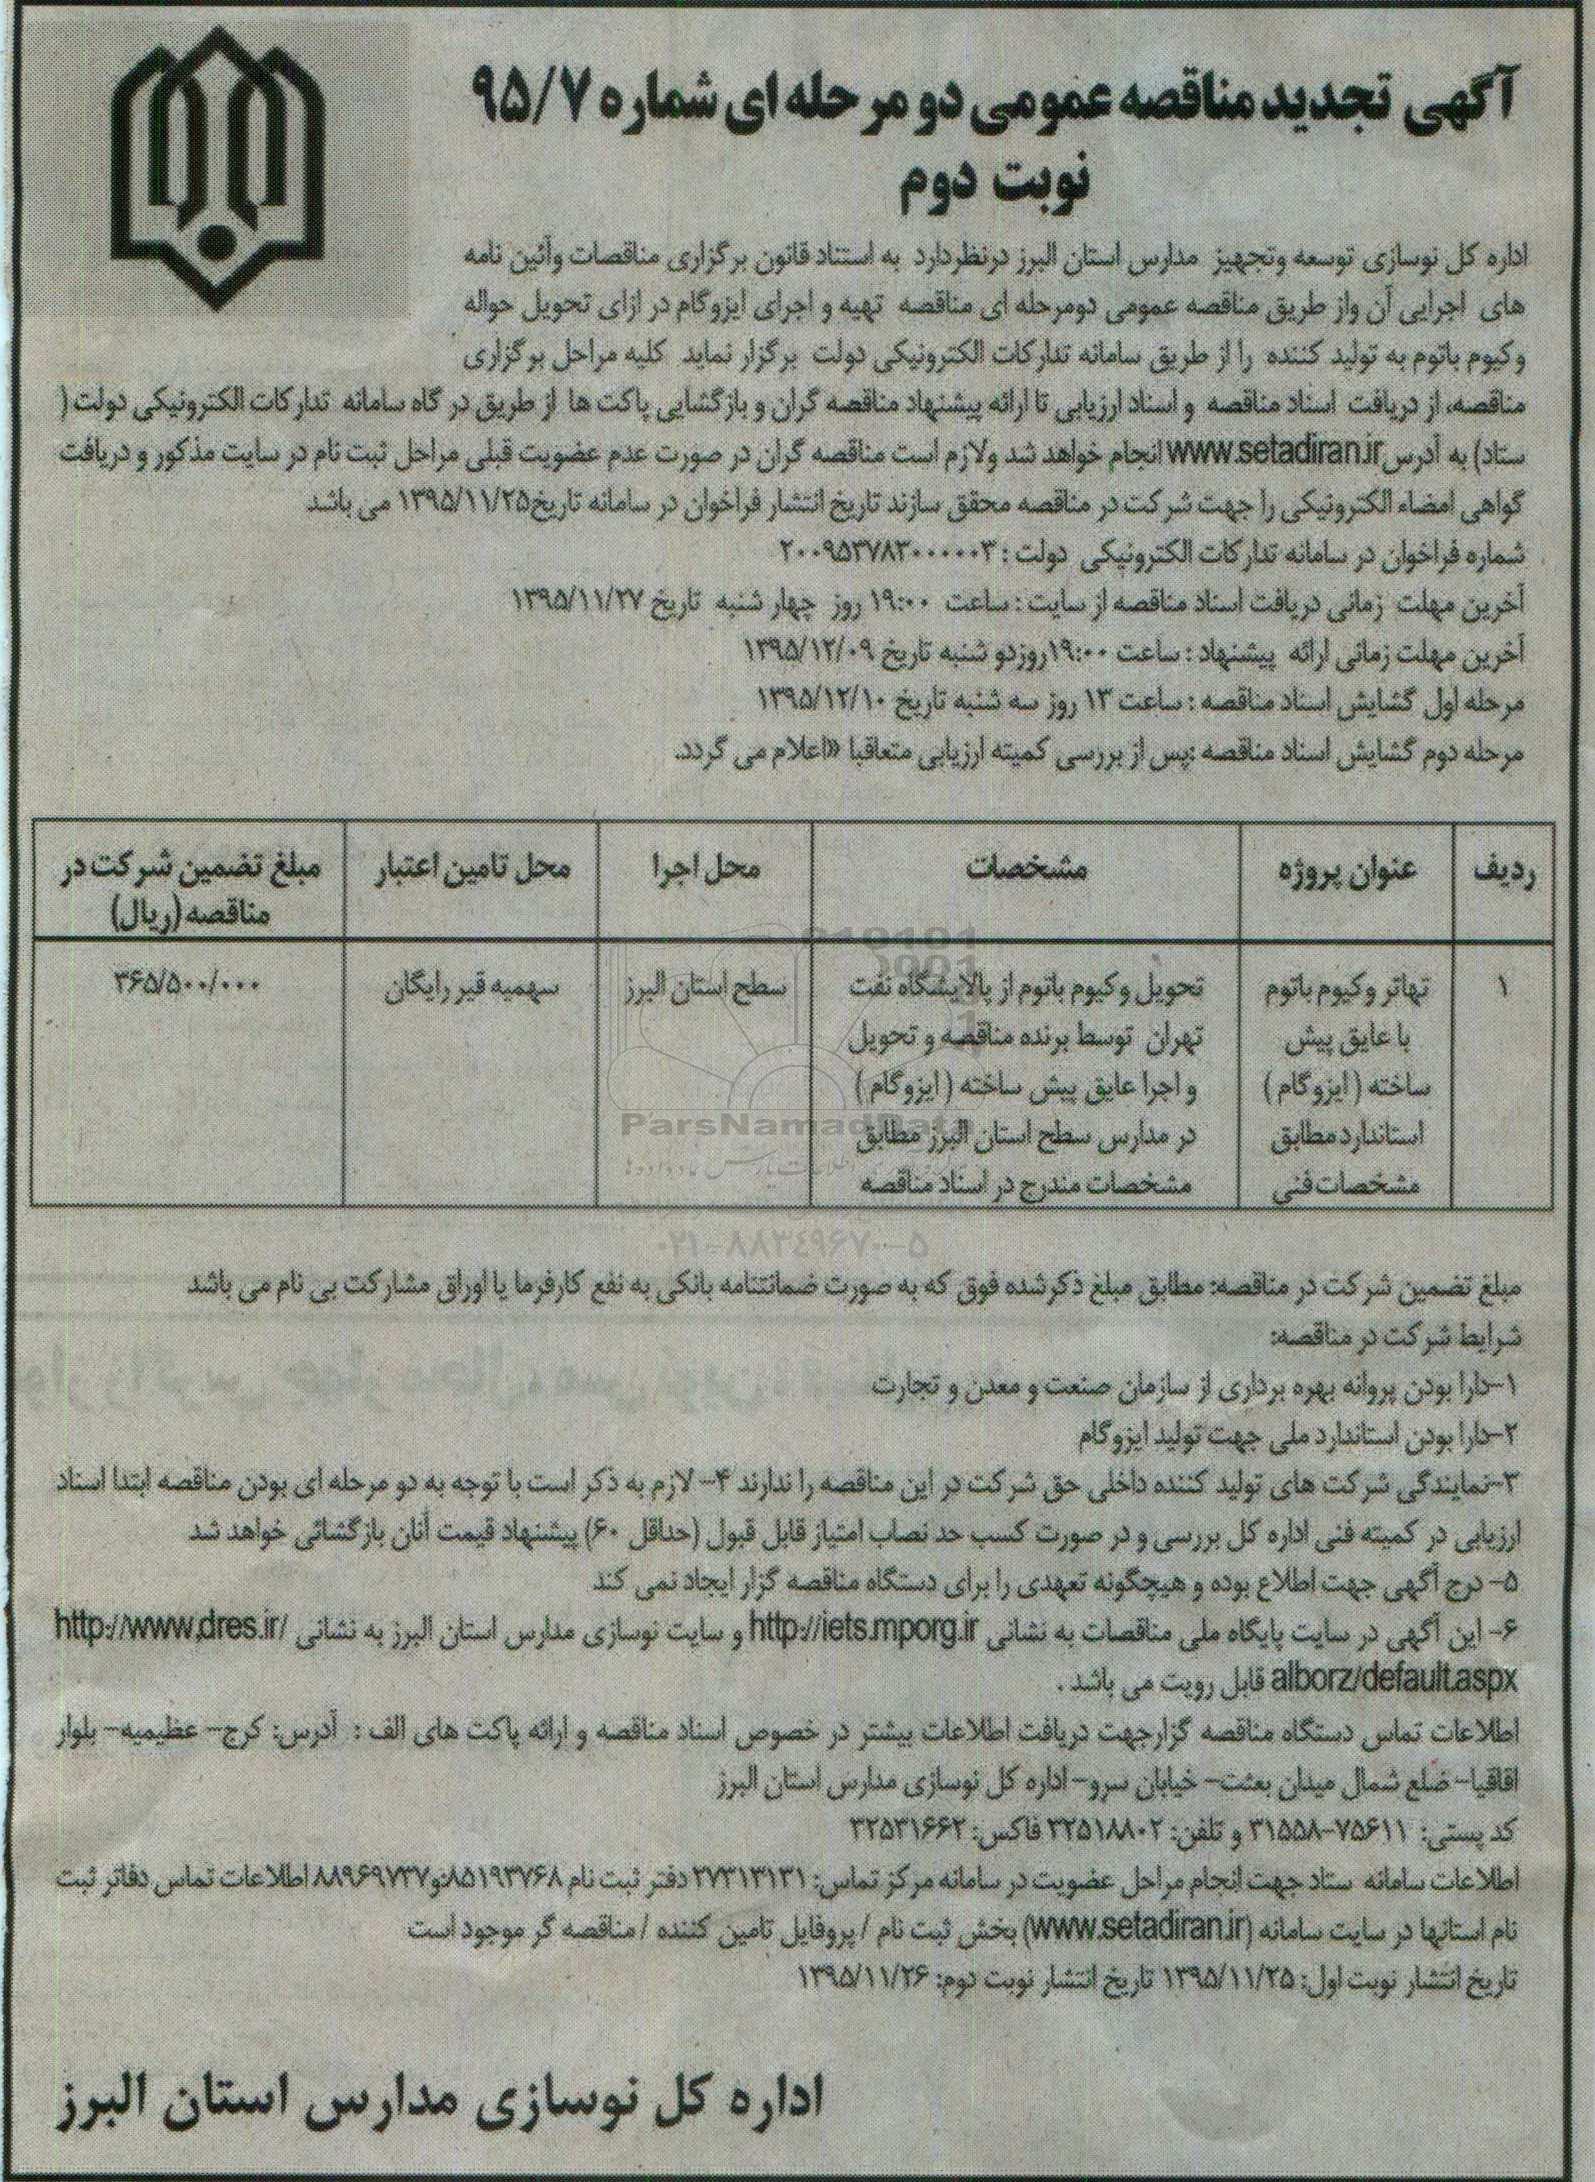 آگهی تجدید مناقصه عمومی دو مرحله ای شماره ۹۵/۷
نوبت دوم
اداره کل نوسازی توسعه وتجهیز مدارس استان البرز درنظردارد به استناد قانون برگزاری مناقصات وآئین نامه
های اجرایی آن واز طریق مناقصه عمومی دومرحله ای مناقصه تهیه و اجرای ایزوگام در ازای تحویل حواله
وکیوم باتوم به تولید کننده را از طریق سامانه تدارکات الکترونیکی دولت برگزار نماید کلیه مراحل برگزاری
مناقصه، از دریافت اسناد مناقصه و اسناد ارزیابی تا ارائه پیشنهاد مناقصه گران و بازگشایی پاکت ها از طریق در گاه سامانه تدارکات الکترونیکی دولت (
ستاد) به آدرس www.setadiran.ir انجام خواهد شد ولازم است مناقصه گران در صورت عدم عضویت قبلی مراحل ثبت نام در سایت مذکور و دریافت
گواهی امضاء الکترونیکی را جهت شرکت در مناقصه محقق سازند تاریخ انتشار فراخوان در سامانه تاریخ۱۳۹۵/۱۱/۲۵ می باشد
شماره فراخوان در سامانه تدارکات الکترونیکی دولت : ۲۰۰۹۵۳۷۸۳۰۰۰۰۰۳
آخرین مهلت زمانی دریافت اسناد مناقصه از سایت : ساعت ۱۹:۰۰ روز چهار شنبه تاریخ ۱۳۹۵/۱۱/۲۷
آخرین مهلت زمانی ارائه پیشنهاد : ساعت ۱۹:۰۰روزدو شنبه تاریخ ۱۳۹۵/۱۲/۰۹
مرحله اول گشایش اسناد مناقصه : ساعت ۱۳ روز سه شنبه تاریخ ۱۳۹۵/۱۲/۱۰
مرحله دوم گشایش اسناد مناقصه :پس از بررسی کمیته ارزیابی متعاقبا «اعلام می گردد.
ردیف عنوان پروژه مشخصات محل اجرا محل تامین اعتبار مبلغ تضمین شرکت در
مناقصه (ریال)
۱ تهاتر وکیوم باتوم تحویل وکیوم باتوم از پالایشگاه نفت سطح استان البرز سهمیه قیر رایگان ۳۶۵/۵۰۰/۰۰۰
با عایق پیش تهران توسط برنده مناقصه و تحویل
ساخته ( ایزوگام ) و اجرا عایق پیش ساخته ( ایزوگام )
استاندارد مطابق در مدارس سطح استان البرز مطابق
مشخصات فنی مشخصات مندرج در اسناد مناقصه
ParsNamadData
۰۲۱-۸۸۳۴۹۶۷۰-۵
مبلغ تضمین شرکت در مناقصه: مطابق مبلغ ذکرشده فوق که به صورت ضمانتنامه بانکی به نفع کارفرما یا اوراق مشارکت بی نام می باشد
شرایط شرکت در مناقصه:
۱-دارا بودن پروانه بهره برداری از سازمان صنعت و معدن و تجارت
۲-دارا بودن استاندارد ملی جهت تولید ایزوگام
۳-نمایندگی شرکت های تولید کننده داخلی حق شرکت در این مناقصه را ندارند ۴- لازم به ذکر است با توجه به دو مرحله ای بودن مناقصه ابتدا اسناد
ارزیابی در کمیته فنی اداره کل بررسی و در صورت کسب حد نصاب امتیاز قابل قبول (حداقل ۶۰) پیشنهاد قیمت آنان بازگشائی خواهد شد
۵- درج آگهی جهت اطلاع بوده و هیچگونه تعهدی را برای دستگاه مناقصه گزار ایجاد نمی کند
۶- این آگهی در سایت پایگاه ملی مناقصات به نشانی http://iets.mporg.ir و سایت نوسازی مدارس استان البرز به نشانی http://www.dres.ir/
alborz/default.aspx قابل رویت می باشد .
اطلاعات تماس دستگاه مناقصه گزارجهت دریافت اطلاعات بیشتر در خصوص اسناد مناقصه و ارائه پاکت های الف : آدرس: کرج- عظیمیه- بلوار
اقاقیا- ضلع شمال میدان بعثت- خیابان سرو- اداره کل نوسازی مدارس استان البرز
کد پستی: ۷۵۶۱۱-۳۱۵۵۸ و تلفن: ۳۲۵۱۸۸۰۲ فاکس: ۳۲۵۳۱۶۶۲
اطلاعات سامانه ستاد جهت انجام مراحل عضویت در سامانه مرکز تماس: ۲۷۳۱۳۱۳۱ دفتر ثبت نام ۸۵۱۹۳۷۶۸و ۸۸۹۶۹۷۳۷ اطلاعات تماس دفاتر ثبت
نام استانها در سایت سامانه (www.setadiran.ir) بخش ثبت نام / پروفایل تامین کننده / مناقصه گر موجود است
تاریخ انتشار نوبت اول: ۱۳۹۵/۱۱/۲۵ تاریخ انتشار نوبت دوم: ۱۳۹۵/۱۱/۲۶
اداره کل نوسازی مدارس استان البرز